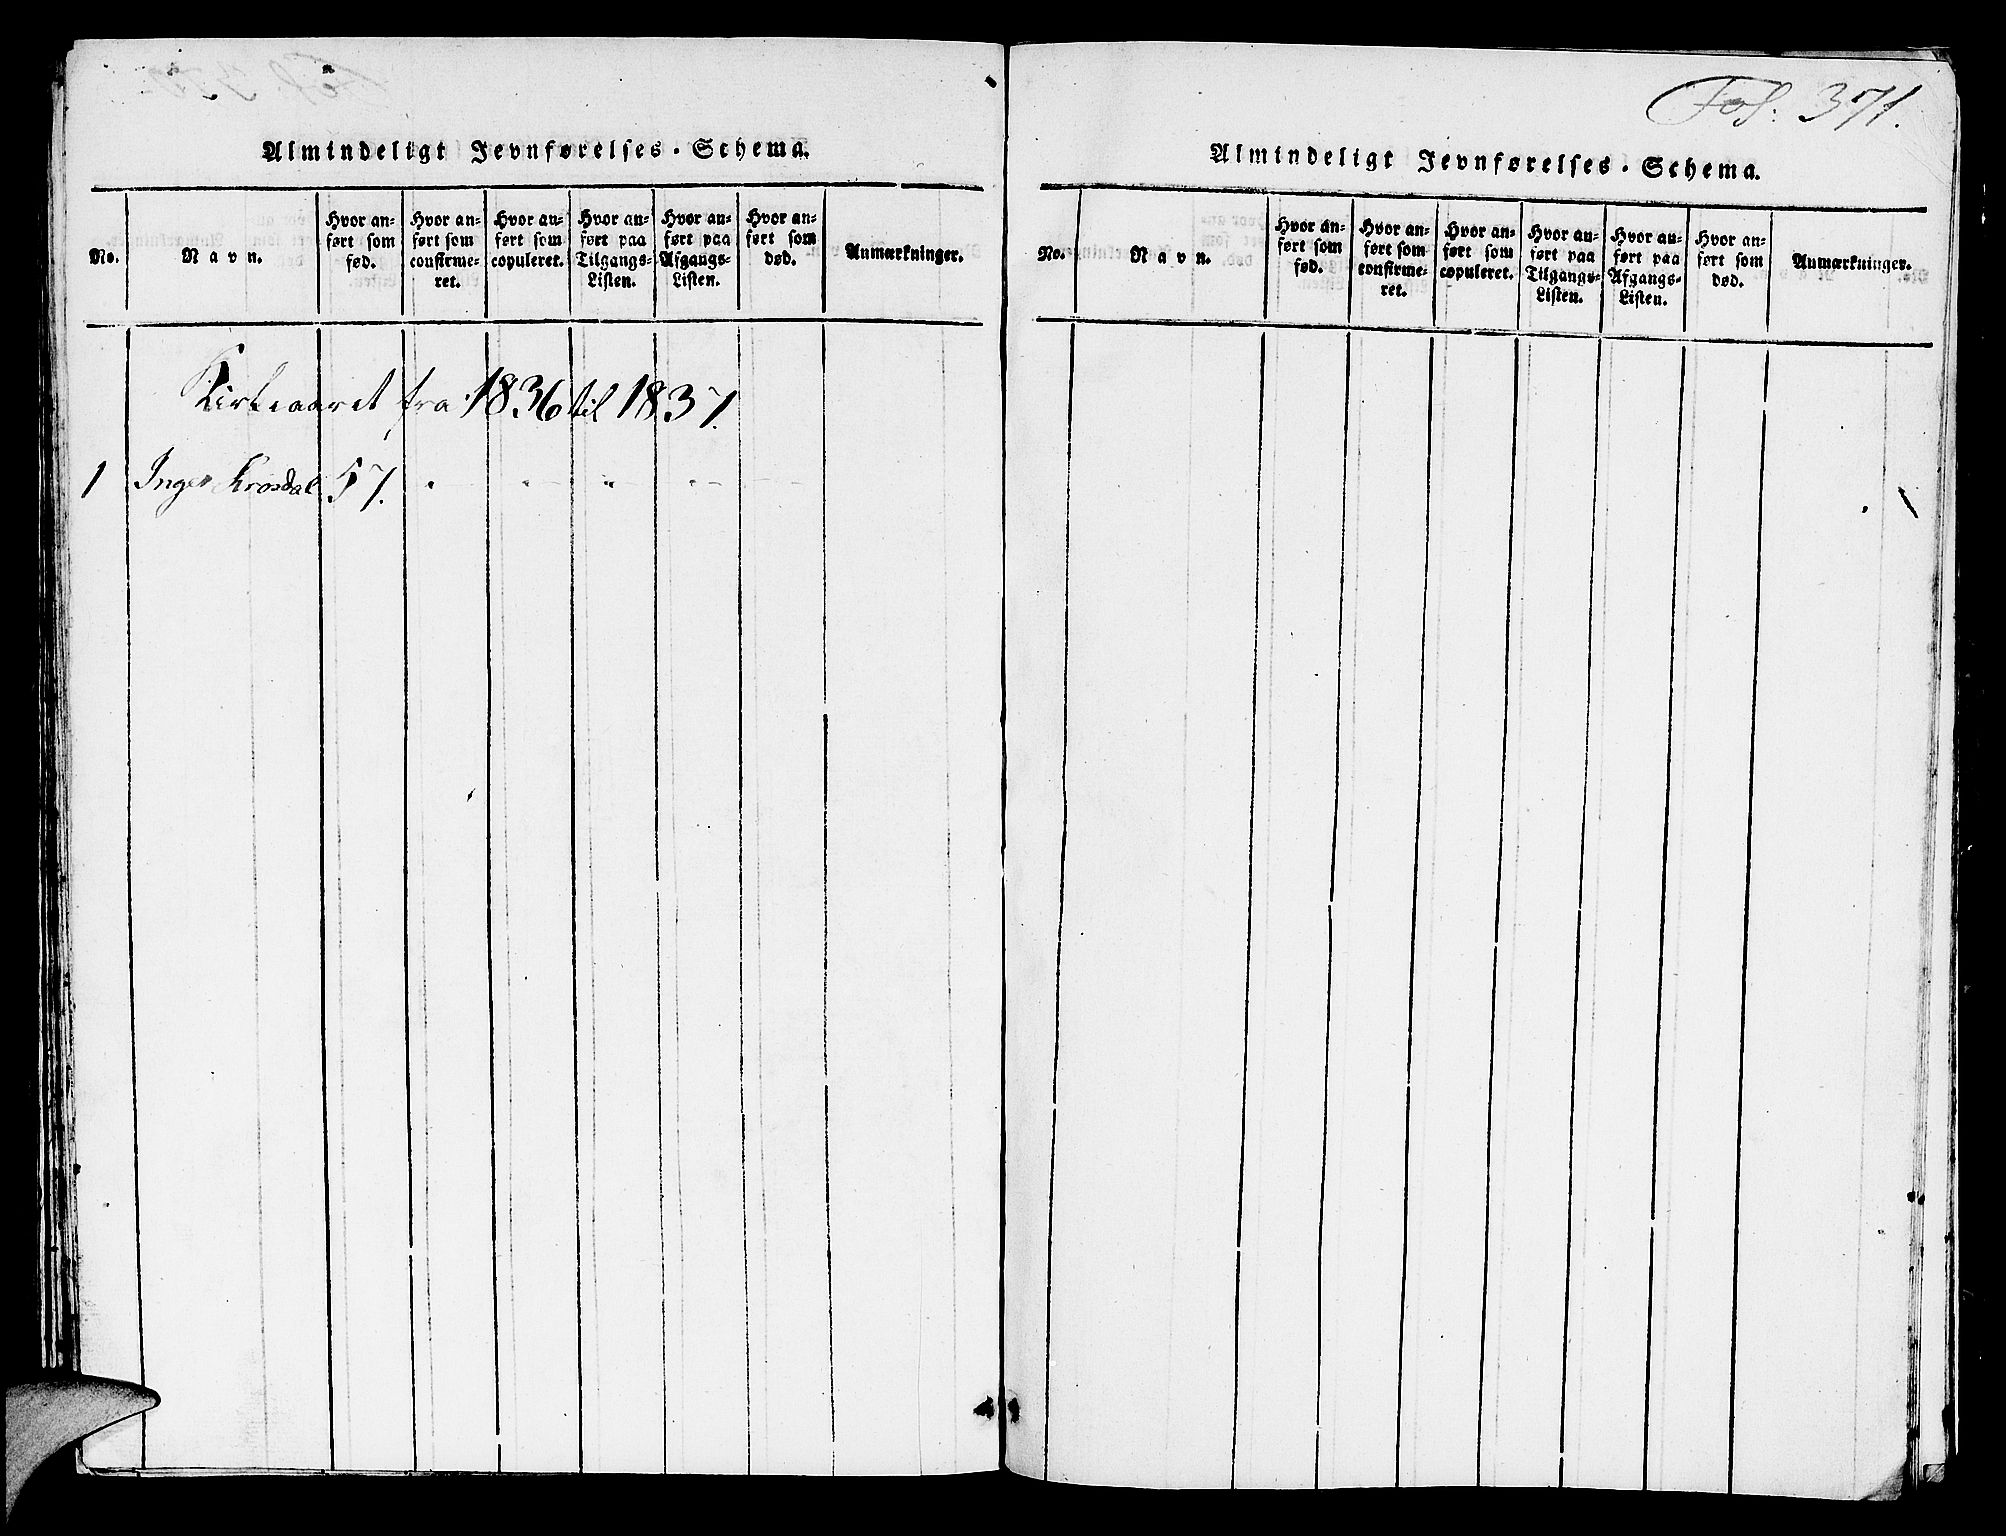 Almindeligt Jevnførelses-Schema.
No.
Navn.
Hvor an-
ført som
fød.
Hvor an-
ført som
confirme-
ret.
Hvor an-
ført som
copuleret.
Hvor an-
ført paa
Tilgangs-
Listen.
Hvor an-
ført paa
Afgangs-
Listen.
Hvor an-
ført som
død.
Anmærkninger.
Kirkeaaret fra 1836 til 1837.
1 Inger Krosdal 57. " - " " - " - - -
Fol: 371.
Almindeligt Jevnførelses-Schema.
No.
Navn.
Hvor an-
ført som
fød.
Hvor an-
ført som
confirme-
ret.
Hvor an-
ført som
copuleret.
Hvor an-
ført paa
Tilgangs-
Listen.
Hvor an-
ført paa
Afgangs-
Listen.
Hvor an-
ført som
død.
Anmærkninger.